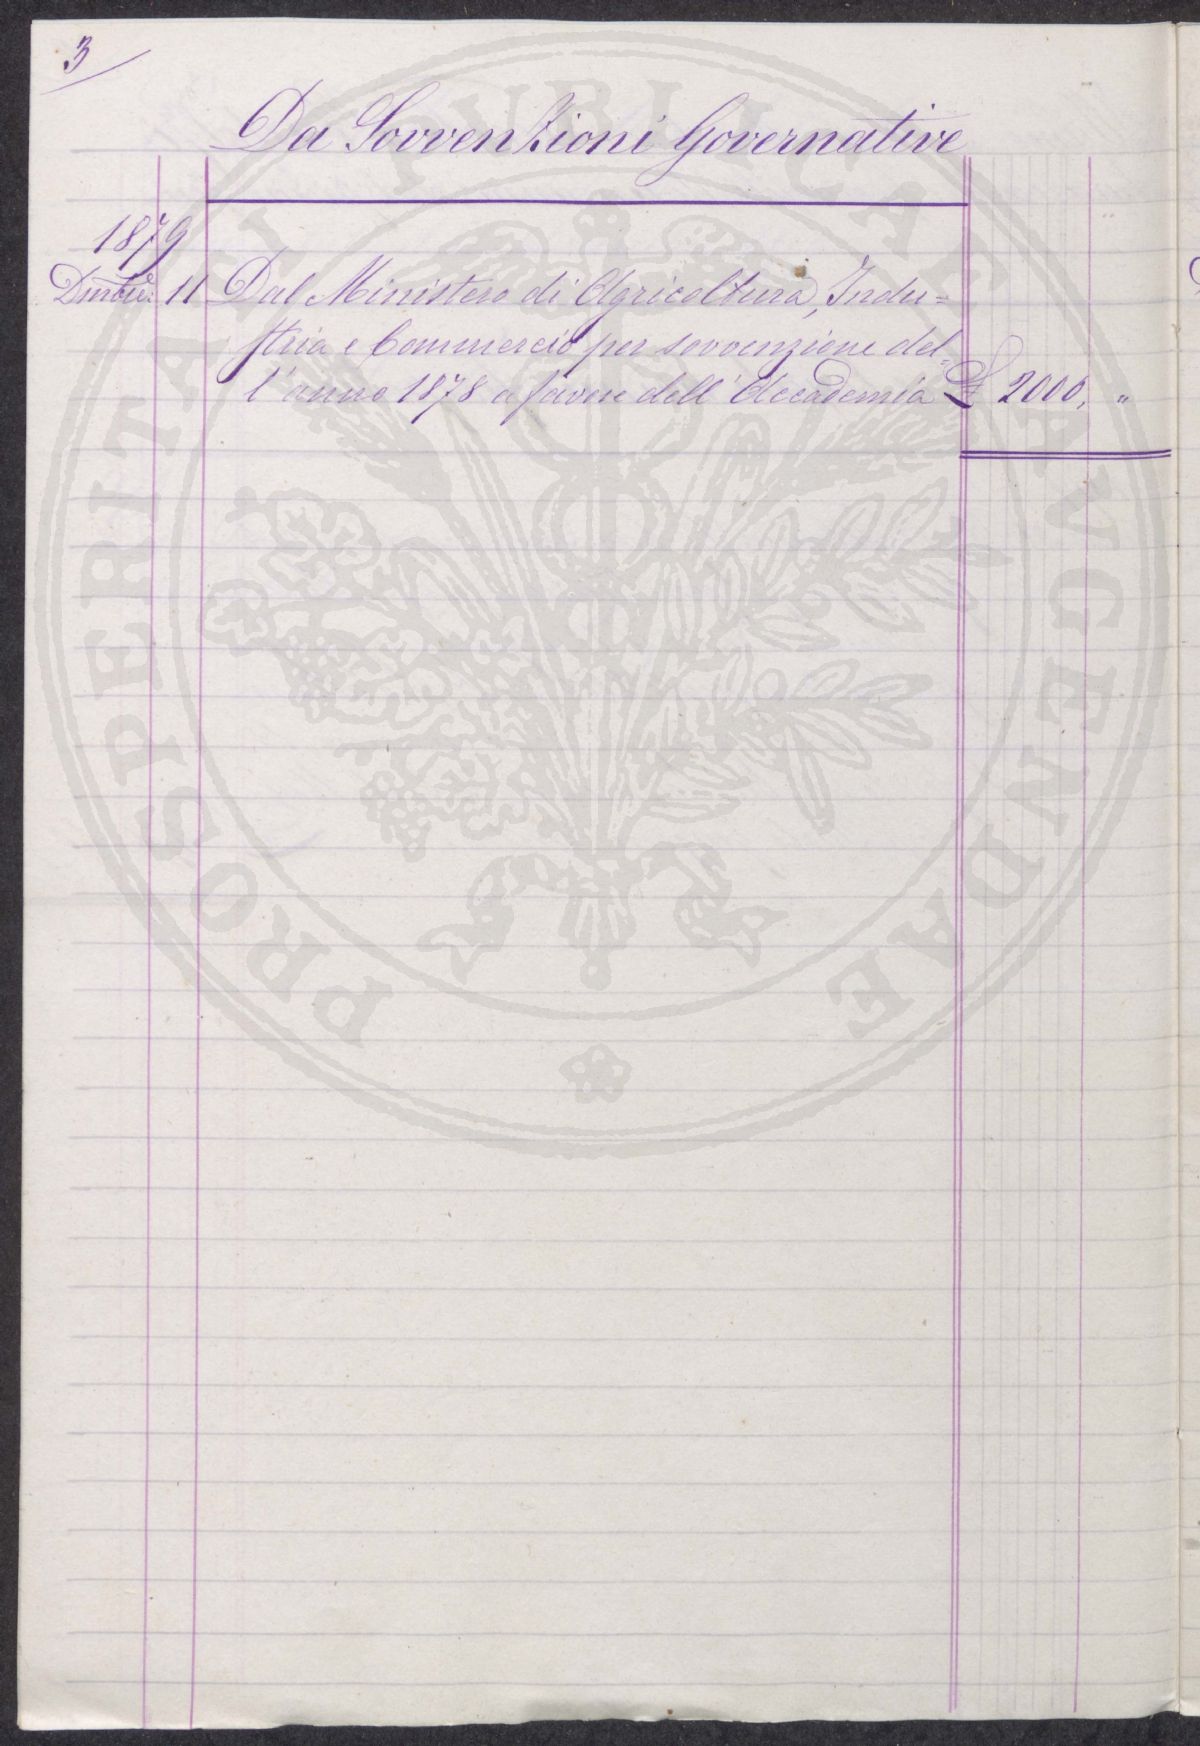 3
Da Sovvenzioni Governative
1879
Dmbre. 11 Dal Ministero di Agricoltura, Indu=
stria e Commercio per sovvenzione del=
l'anno 1878 a favore dell'Accademia £ 2000, "
PROSPERITATI PUBLICAE AVGENDAE